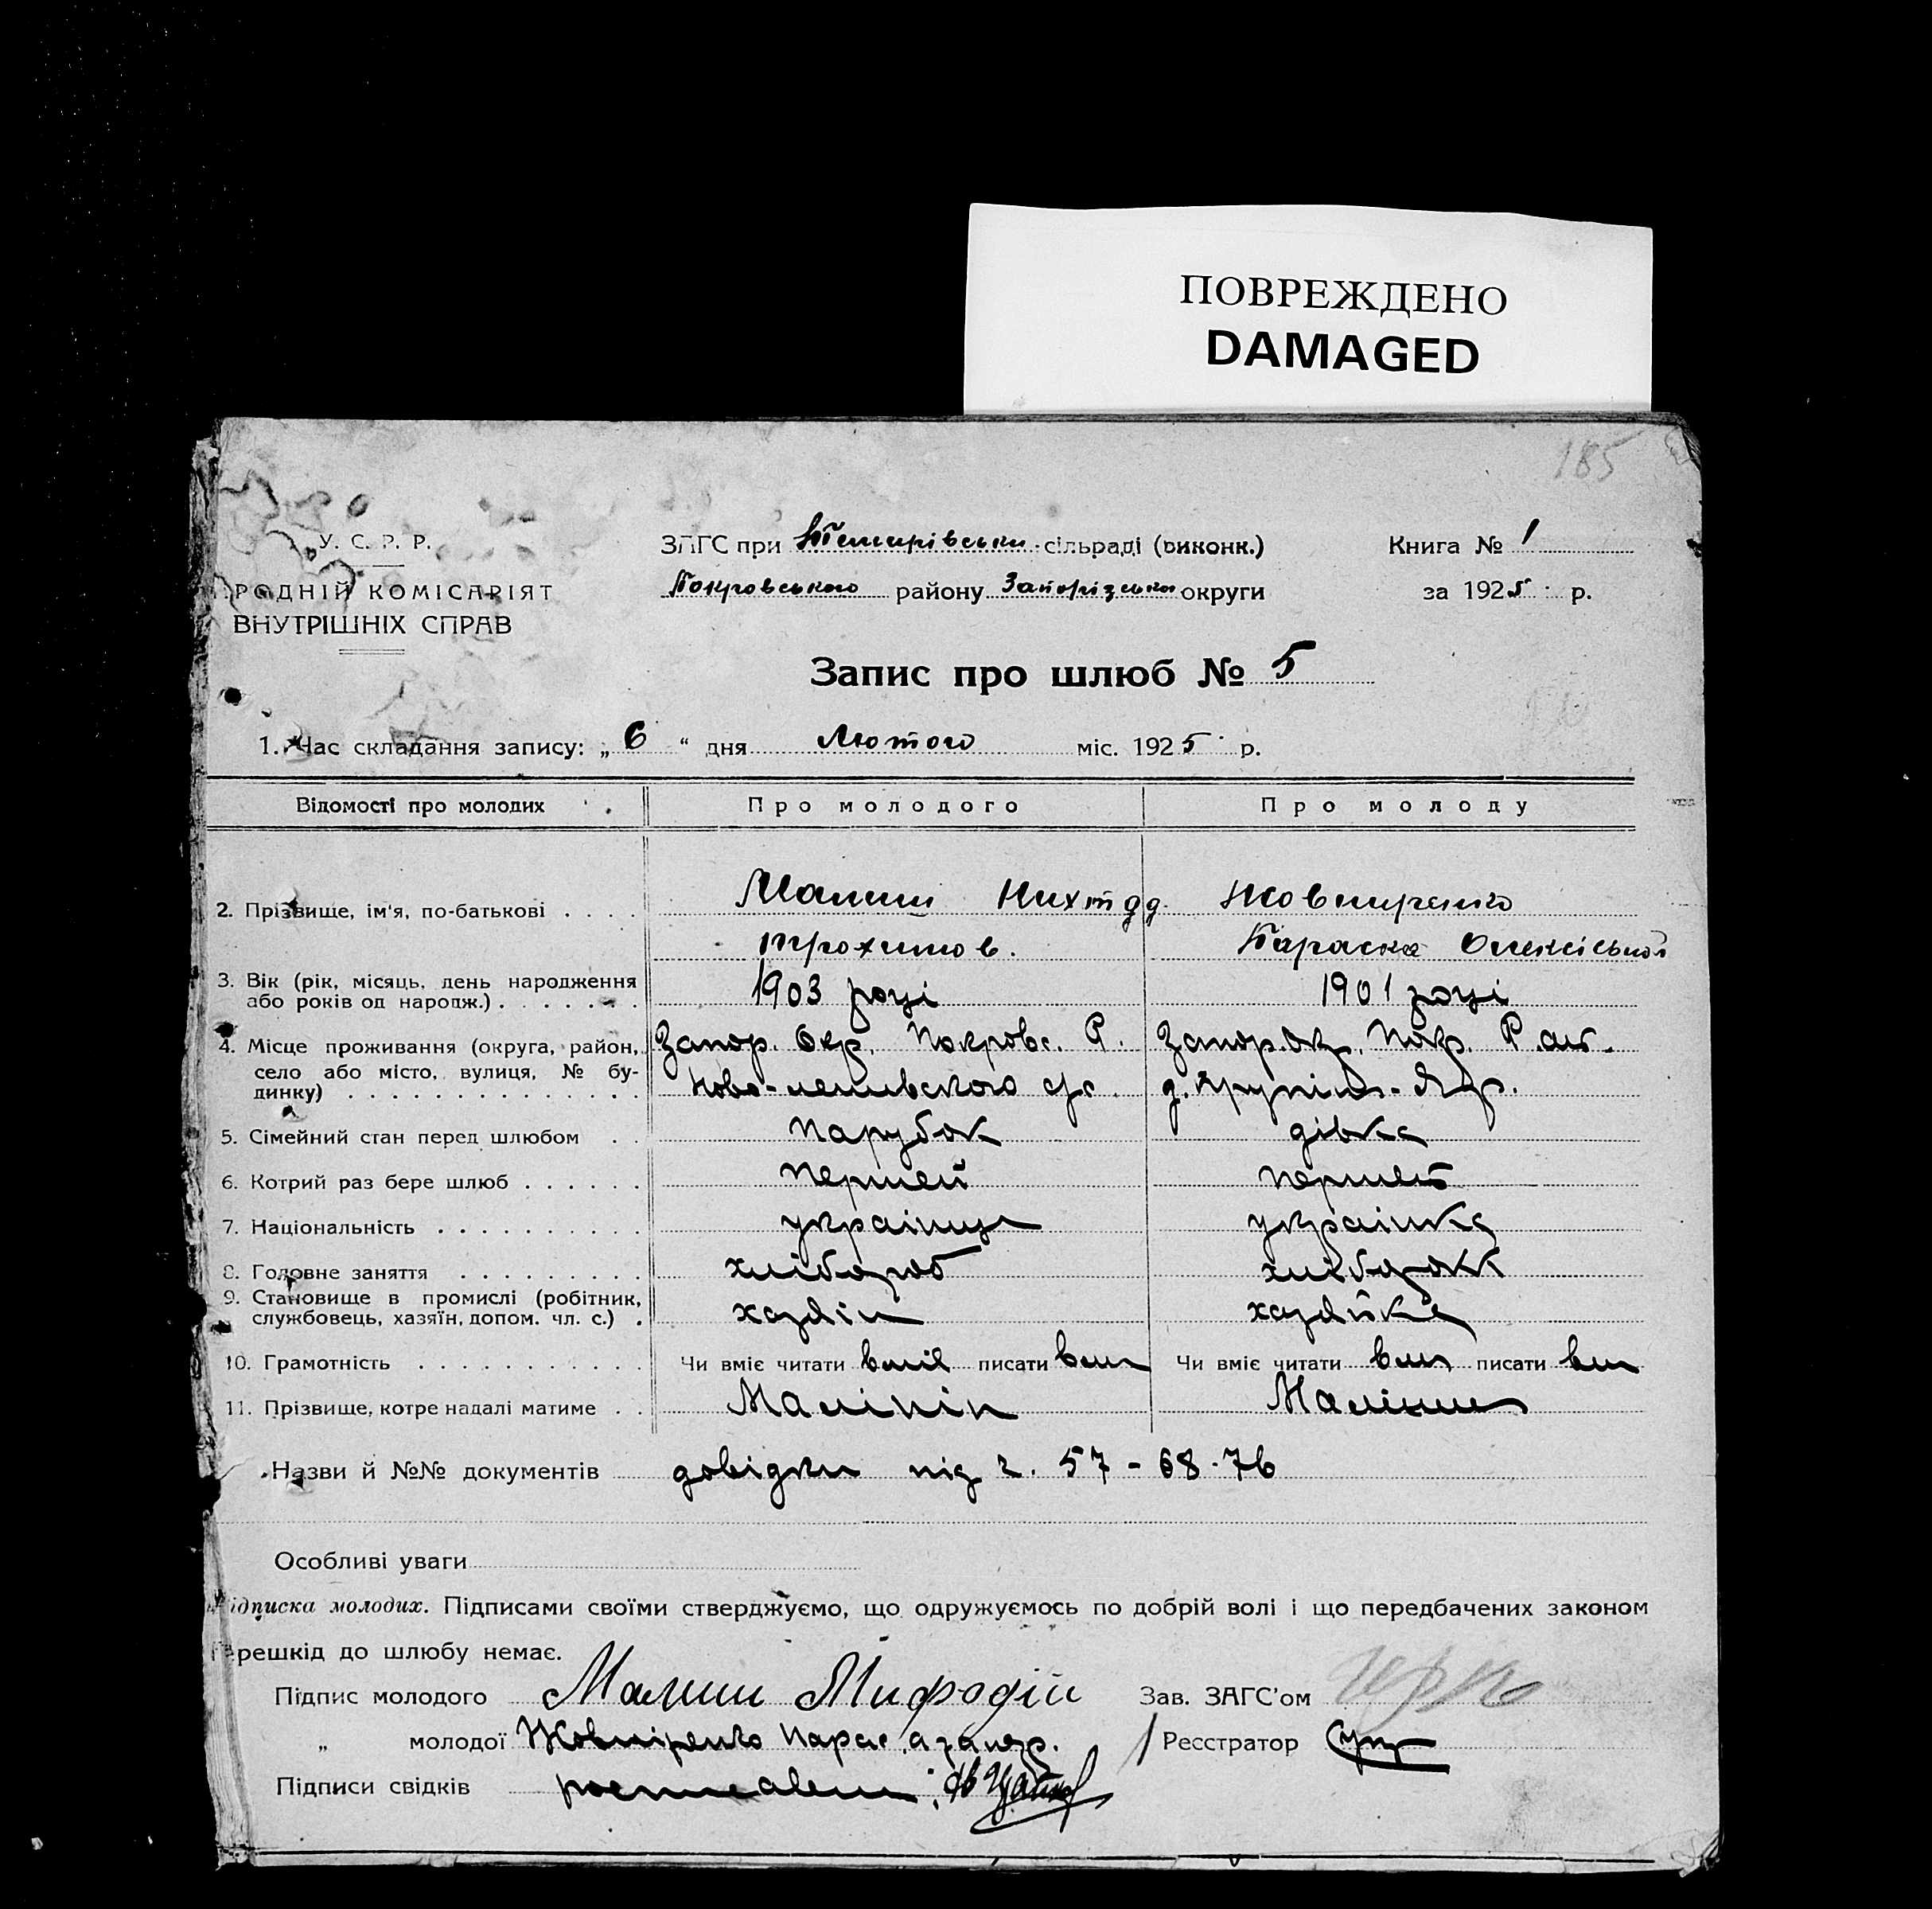 ПОВРЕЖДЕНО
DAMAGED
185
У. С. Р. Р.
РОДНІЙ КОМІСАРІЯТ
ВНУТРІШНІХ СПРАВ
ЗАГС при сільраді (виконк.)
Покровського району Запорізько округи
Книга № 1
за 1925 р.
Запис про шлюб № 5
1. Час складання запису: „ 6 “ дня Лютого міс. 1925 р.
Відомості про молодих Про молодого Про молоду
2. Прізвище, ім'я, по-батькові Малиш Жовниренко
трохимов. Параска Олексіьной
3. Вік (рік, місяць, день народження
або років од народж.) 1903 році 1901 році
4. Місце проживання (округа, район, Запор. Окр. Покровс. Р. Запор. Окр. Покр. Р.
село або місто, вулиця, № бу-
динку) Ново-
5. Сімейний стан перед шлюбом Парубок дівка
6. Котрий раз бере шлюб Першей Першей
7. Національність українец українка
8. Головне заняття хлібороб
9. Становище в промислі (робітник,
службовець, хазяїн, допом. чл. с.) хазяін хазяйка
10. Грамотність Чи вміє читати вміє писати вмі Чи вміє читати вмі писати вмі
11. Прізвище, котре надалі матиме Малінін
Назви й №№ документів довідки під г. 57 - 68 - 76
Особливі уваги
ідписка молодих. Підписами своїми стверджуємо, що одружуємось по добрій волі і що передбачених законом
ерешкід до шлюбу немає.
Підпис молодого Малиш Мифодій Зав. ЗАГС'ом
„ молодої Жовніренко Парас Реєстратор
Підписи свідків